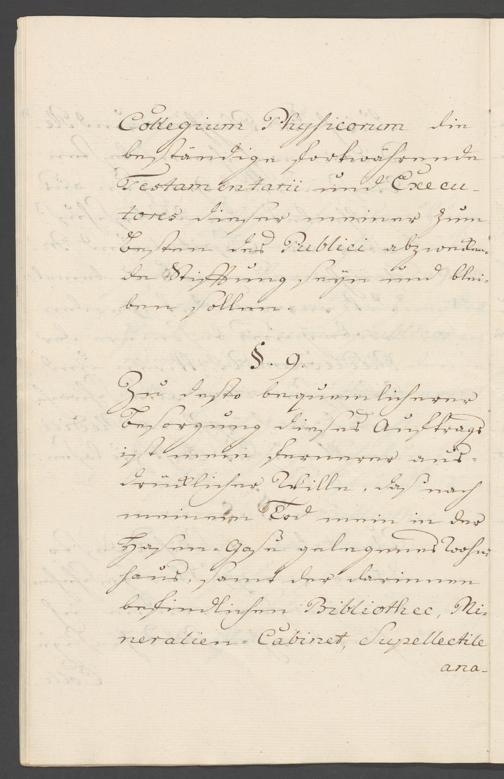 Collegium Physicorum die
beständige fortwährende
Testamentarii und Execu-
tores dieser meiner zum
besten des Publici abzwecken-
de Stifftung seyn und blei-
ben sollen.
§. 9.
Zu desto bequemlicherer
Besorgung dieses Auftrags
ist mein fernerer aus-
drücklicher Wille, daß nach
meinem Tod mein in der
Hasen-Gaße gelegenes Wohn-
haus, samt der darinnen
befindlichen Bibliothec, Mi-
neralien-Cabinet, Supellectile
ana-